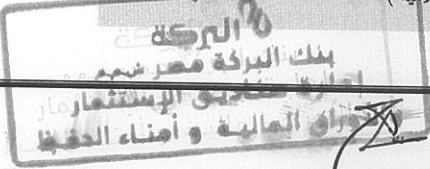 البركة
بنك البركة مصر ش.م.م
إدارة صناديق الإستثمار
والأوراق المالية و أمناء الحفظ